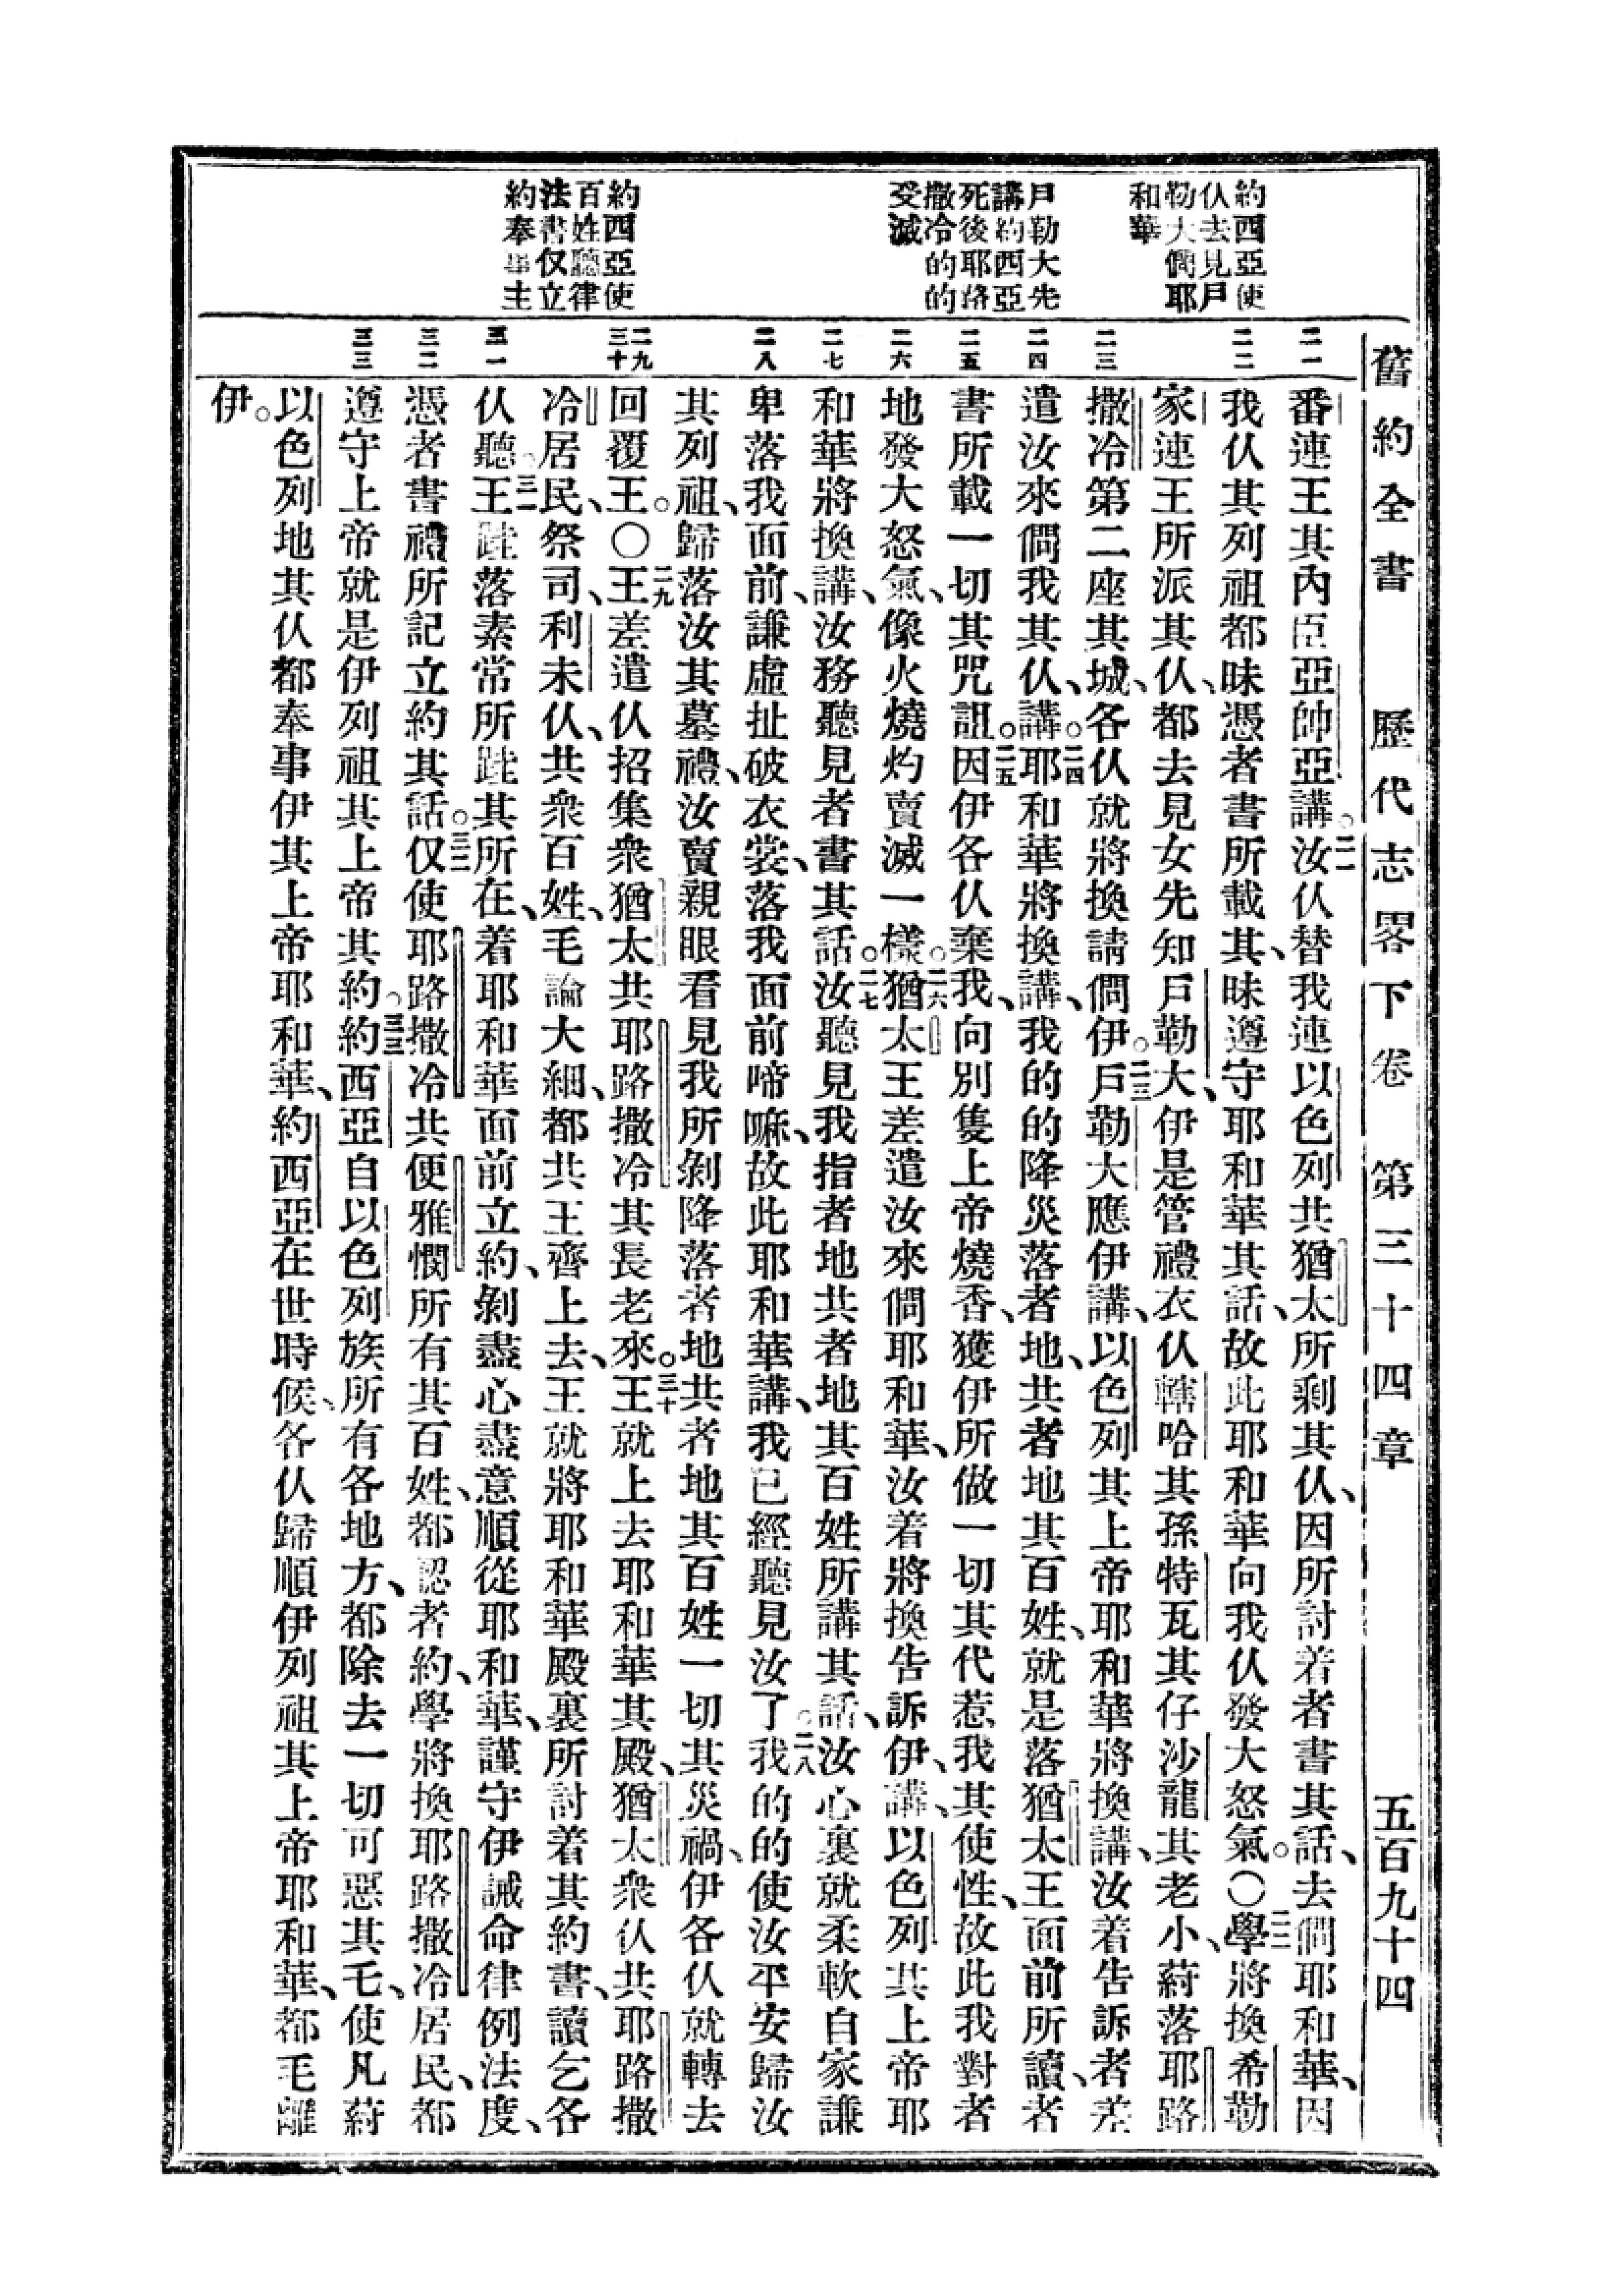 舊約全書 歷代志畧下卷 第三十四章 五百九十四
約西亞使
仈去見戶
勒大僩耶
和華
戶勒大先
講約西亞
死後耶路
撒冷的的
受滅
約西亞使
百姓聽律
法書仅立
約奉事主
二一
二二
二三
二四
二五
二六
二七
二八
二九
三十
三一
三二
三三
番連王其內臣亞帥亞講。二一汝仈替我連以色列共猶太所剩其仈、因所討着者書其話、去僩耶和華、因
我仈其列祖都昧憑者書所載其、昧遵守耶和華其話、故此耶和華向我仈發大怒氣。〇二二學將換希勒
家連王所派其仈、都去見女先知戶勒大、伊是管禮衣仈轄哈其孫特瓦其仔沙龍其老小、蒶落耶路
撒冷第二座其城、各仈就將換請僩伊。二三戶勒大應伊講、以色列其上帝耶和華將換講、汝着告訴者差
遣汝來僩我其仈、講。二四耶和華將換講、我的的降災落者地、共者地其百姓、就是落猶太王面前所讀、者
書所載一切其咒詛。二五因伊各仈棄我、向別隻上帝燒香、獲伊所做一切其代惹我其使性、故此我對者
地發大怒氣、像火燒灼賣滅一樣。二六猶太王差遣汝來僩耶和華、汝着將換告訴伊、講、以色列其上帝耶
和華將換講、汝務聽見者書其話。二七汝聽見我指者地共者地其百姓所講其話、汝心裏就柔軟自家謙
卑落我面前、謙虛扯破衣裳、落我面前啼嘛、故此耶和華講、我已經聽見汝了。二八我的的使汝平安歸汝
其列祖、歸落汝其墓禮、汝賣親眼看見我所剝降落者地共者地其百姓一切其災禍、伊各仈就轉去
回覆王。〇二九王差遣仈招集衆猶太共耶路撒冷其長老來。三十王就上去耶和華其殿、猶太衆仈共耶路撒
冷居民、祭司、利未仈、共衆百姓、毛論大細、都共王齊上去、王就將耶和華殿裏所討着其約書、讀乞各
仈聽。三一王跬落素常所跬其所在、着耶和華面前立約、剝盡心盡意順從耶和華、謹守伊誡命律例法度、
憑者書禮所記立約其話。三二仅使耶路撒冷共便雅憫所有其百姓、都認者約、學將換耶路撒冷居民、都
遵守上帝就是伊列祖其上帝其約。三三約西亞自以色列族所有各地方、都除去一切可惡其乇、使凡蒶
以色列地其仈都奉事伊其上帝耶和華、約西亞在世時候、各仈歸順伊列祖其上帝耶和華、都毛離
伊。